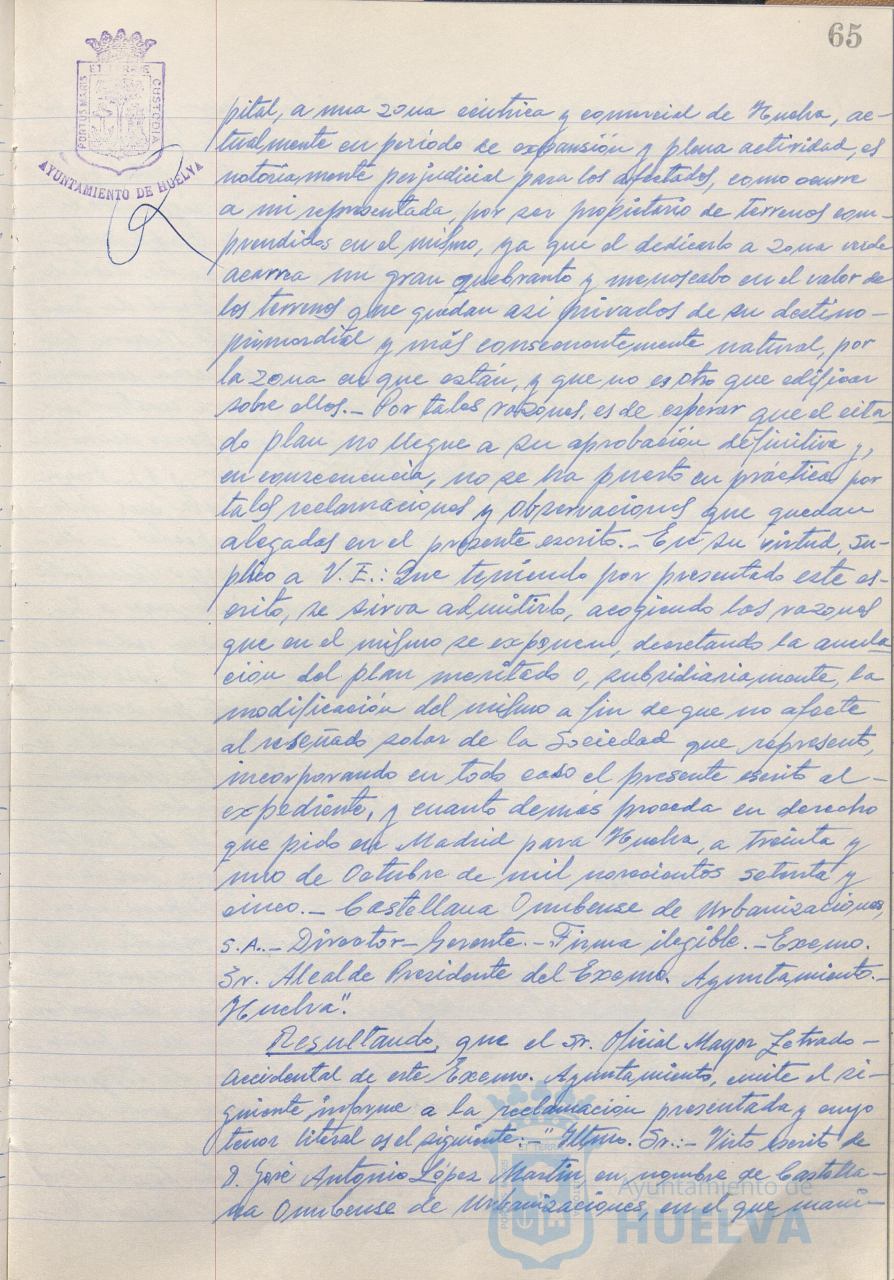 65
ET TERRAE
PORTUS MARIS
CUSTODIA
AYUNTAMIENTO DE HUELVA
pital, a una zona céntrica y comercial de Huelva, ac-
tualmente en período de expansión y plena actividad, es
notoriamente perjudicial para los afectados, como ocurre
a mi representada, por ser propietario de terrenos com-
prendidos en el mismo, ya que el dedicarlo a zona verde
acarrea un gran quebranto y menoscabo en el valor de
los terrenos que quedan asi privados de su destino-
primordial y más consecuentemente natural, por
la zona en que están, y que no es otro que edificar
sobre ellos.- Por tales razones, es de esperar que el cita
do plan no llegue a su aprobación definitiva y,
en consecuencia, no se ha puesto en práctica por
tales reclamaciones y observaciones que quedan
alegadas en el presente escrito.- En su virtud, su-
plico a V.E.: Que teniendo por presentado este es-
crito, se sirva admitirlo, acogiendo las razones
que en el mismo se exponen, decretando la anula
ción del plan meritado o, subsidiariamente, la
modificación del mismo a fin de que no afecte
al reseñado solar de la Sociedad que represento,
incorporando en todo caso el presente escrito al-
expediente, y cuanto demás proceda en derecho
que pido en Madrid para Huelva, a treinta y
uno de Octubre de mil novecientos setenta y
cinco.- Castellana Onubense de Urbanizaciones,
S.A.- Director-Gerente.- Firma ilegible.- Excmo.
Sr. Alcalde Presidente del Excmo. Ayuntamiento.-
Huelva".
Resultando, que el Sr. Oficial Mayor Letrado-
accidental de este Excmo. Ayuntamiento, emite el si-
guiente informe a la reclamación presentada y cuyo
tenor literal es el siguiente:-" Iltmo. Sr.:- Visto escrito de
D. José Antonio López Martín, en nombre de Castella-
na Onubense de Urbanizaciones, en el que mani-
Ayuntamiento de
HUELVA